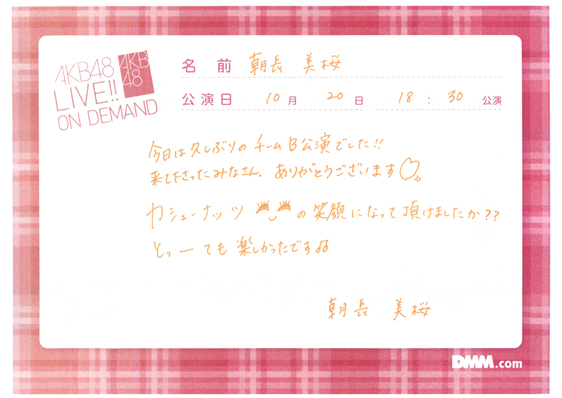 AKB48
LIVE!!
ON DEMAND
AKB
48
名 前 朝長 美桜
公演日 10月 20日 18:30公演
今日は久しぶりのチームB公演でした!!
来て下さったみなさん、ありがとうございます♡
カシューナッツ の笑顔になって頂けましたか??
とっーても楽しかったです♫
朝長 美桜
DMM.com